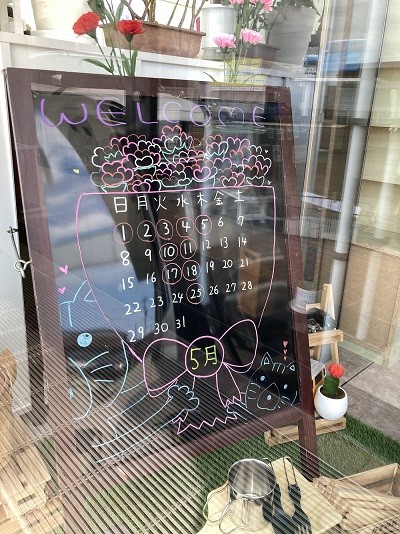 WELCOME
日 月 火 水 木 金 土
1 2 3 4 5 6 7
8 9 10 11 12 13 14
15 16 17 18 19 20 21
22 23 24 25 26 27 28
29 30 31
5月